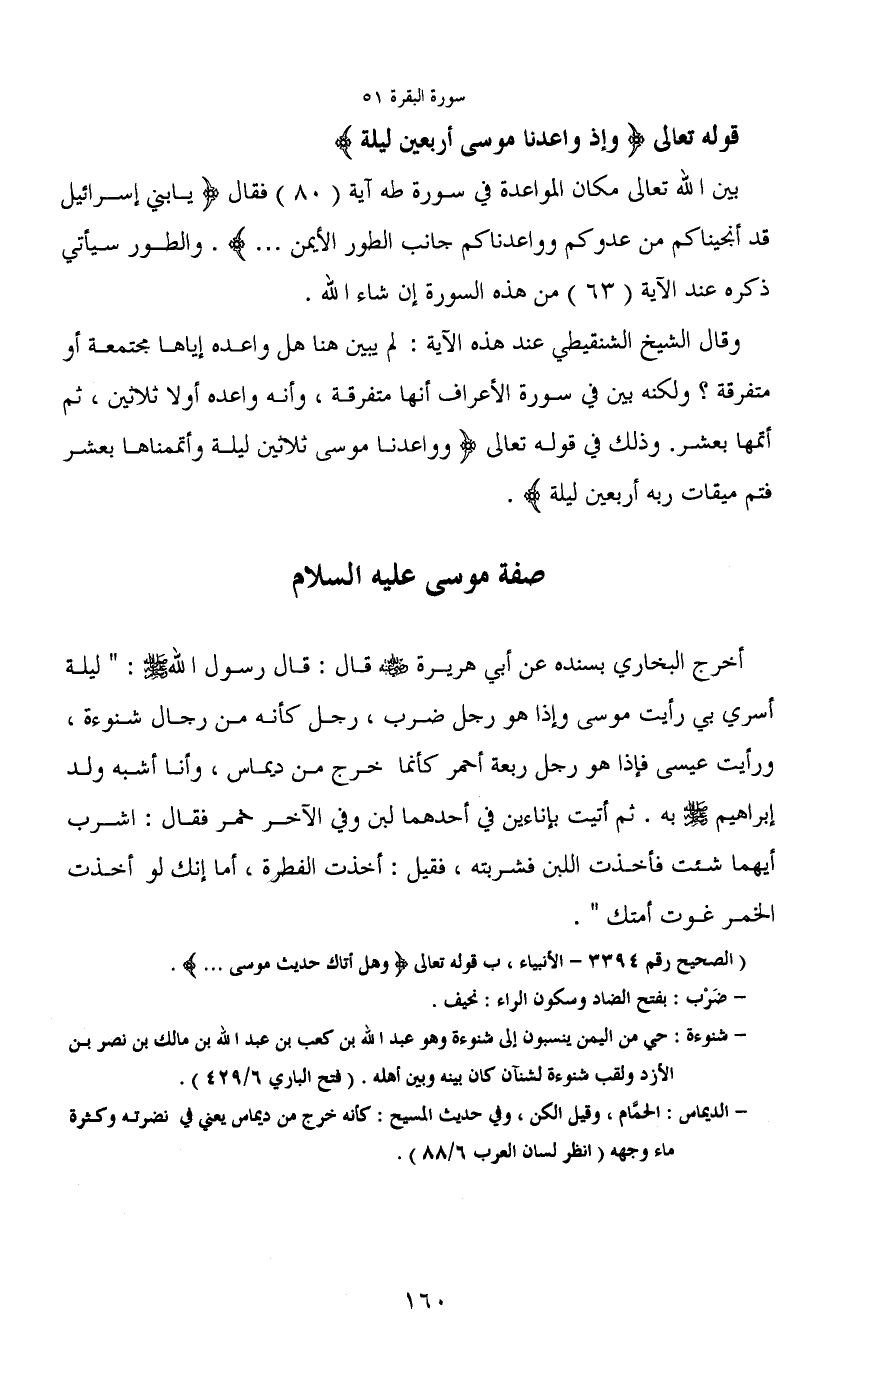 سورة البقرة ٥١
قوله تعالى ﴿ وإذ واعدنا موسى أربعين ليلة ﴾
بين الله تعالى مكان المواعدة في سورة طه آية ( ٨٠ ) فقال ﴿ يـابني إسـرائيل
قد أنجيناكم من عدوكم وواعدناكم جانب الطور الأيمن ... ﴾ . والطـور سـيأتي
ذكره عند الآية ( ٦٣ ) من هذه السورة إن شاء الله .
وقال الشيخ الشنقيطي عند هذه الآية : لم يبين هنا هل واعـده إياهـا مجتمعـة أو
متفرقة ؟ ولكنه بين في سـورة الأعراف أنها متفرقـة ، وأنـه واعده أولا ثلاثين ، ثـم
أتمها بعشـر. وذلك في قولـه تعالى ﴿ وواعدنـا موسى ثلاثين ليلـة وأتممناهـا بعشـر
فتم ميقات ربه أربعين ليلة ﴾ .
صفة موسى عليه السلام
أخرج البخاري بسنده عن أبي هريـرة رضي الله عنه قـال : قـال رسـول الله ﷺ : " ليلـة
أسري بي رأيت موسى وإذا هو رجل ضـرب ، رجـل كأنـه مـن رجـال شـنوءة ،
ورأيت عيسى فإذا هو رجل ربعة أحمر كأنما خـرج مـن ديمـاس ، وأنـا أشبه ولـد
إبراهيم ﷺ به . ثم أتيت بإناءين في أحدهما لبن وفي الآخـر خمـر فقـال : اشـرب
أيهما شـئت فأخـذت اللبن فشـربته ، فقيل : أخذت الفطرة ، أما إنك لو أخـذت
الخمـر غـوت أمتك " .
( الصحيح رقم ٣٣٩٤ – الأنبياء ، ب قوله تعالى ﴿ وهل أتاك حديث موسى ... ﴾ .
– ضَرْب : بفتح الضاد وسكون الراء : نحيف .
– شنوءة : حي من اليمن ينسبون إلى شنوءة وهو عبد الله بن كعب بن عبد الله بن مالك بن نصر بـن
الأزد ولقب شنوءة لشنآن كان بينه وبين أهله . ( فتح الباري ٤٢٩/٦ ) .
– الديماس : الحمَّام ، وقيل الكن ، وفي حديث المسيح : كأنه خرج من ديماس يعني في نضرتـه وكـثرة
ماء وجهه ( انظر لسان العرب ٨٨/٦ ) .
١٦٠